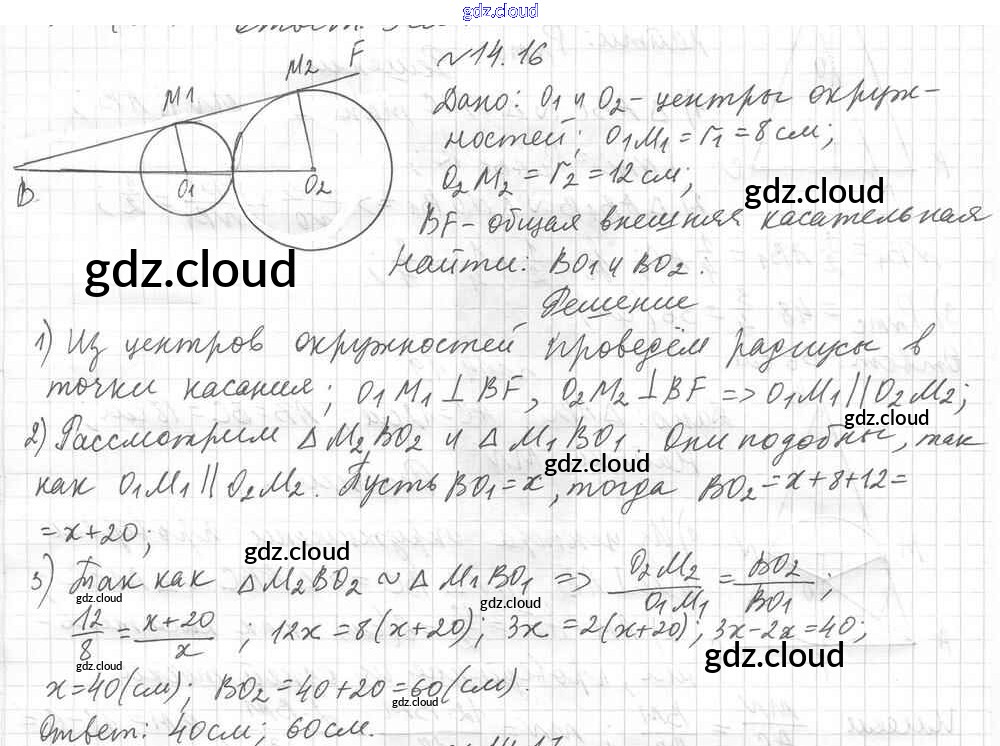 gdz.cloud
№14.16
M2 F
M1
B O1 O2
Дано: O1 и O2 - центры окруж-
ностей; O1M1 = r1 = 8 см;
O2M2 = r2 = 12 см;
gdz.cloud
BF - общая внешняя касательная
gdz.cloud
Найти: BO1 и BO2.
Решение
1) Из центров окружностей проведём радиусы в
точки касания; O1M1 ⊥ BF, O2M2 ⊥ BF => O1M1 || O2M2;
gdz.cloud
2) Рассмотрим △ M2BO2 и △ M1BO1. Они подобны, так
gdz.cloud
как O1M1 || O2M2. Пусть BO1 = x, тогда BO2 = x + 8 + 12 =
= x + 20;
gdz.cloud
3) Так как △ M2BO2 ~ △ M1BO1 => O2M2/O1M1 = BO2/BO1;
gdz.cloud
gdz.cloud
12/8 = x + 20/x; 12x = 8(x + 20); 3x = 2(x + 20); 3x - 2x = 40;
gdz.cloud
gdz.cloud
x = 40 (см); BO2 = 40 + 20 = 60 (см).
gdz.cloud
Ответ: 40 см; 60 см.